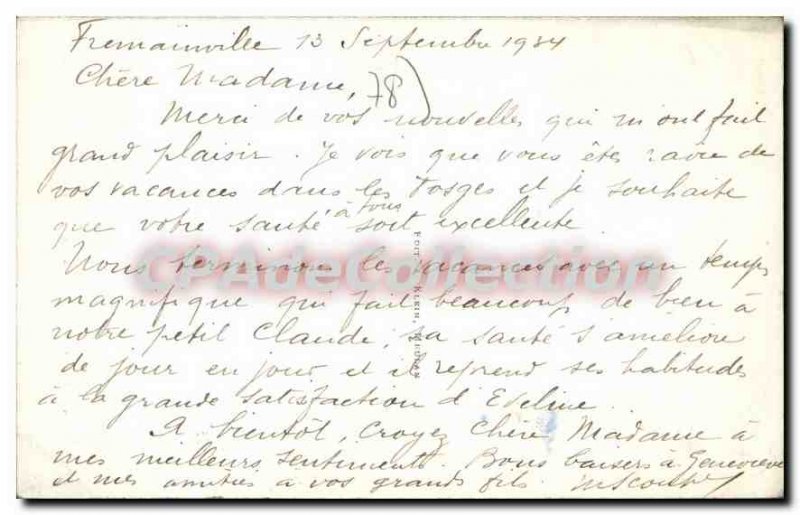 Fremainville 13 Septembre 1934
Chère Madame,
78)
Merci de vos nouvelles qui m'ont fait
grand plaisir. Je vois que vous êtes ravie de
vos vacances dans les Vosges et je souhaite
que votre santé à tous soit excellente
Nous terminons les vacances avec un temps
magnifique qui fait beaucoup de bien à
notre petit Claude, sa santé s'améliore
de jour en jour et il reprend ses habitudes
à la grande satisfaction d'Eveline.
A bientôt, croyez Chère Madame à
mes meilleurs sentiments. Bons baisers à Geneviève
et mes amitiés à vos grands fils
CPAdeCollection